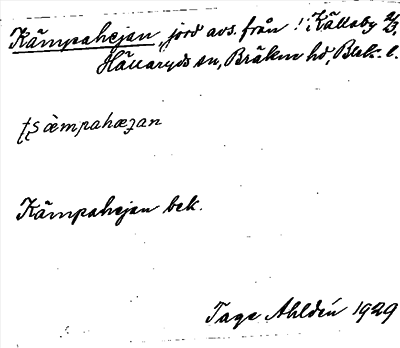 Kämpahejan „jord avs. från ! Källaby 2/3,
Hällaryds sn, Bräkne hd, Blek. l.
ʈʂæ̀mpahæʒan
Kämpahejan bek.
Tage Ahldén 1929